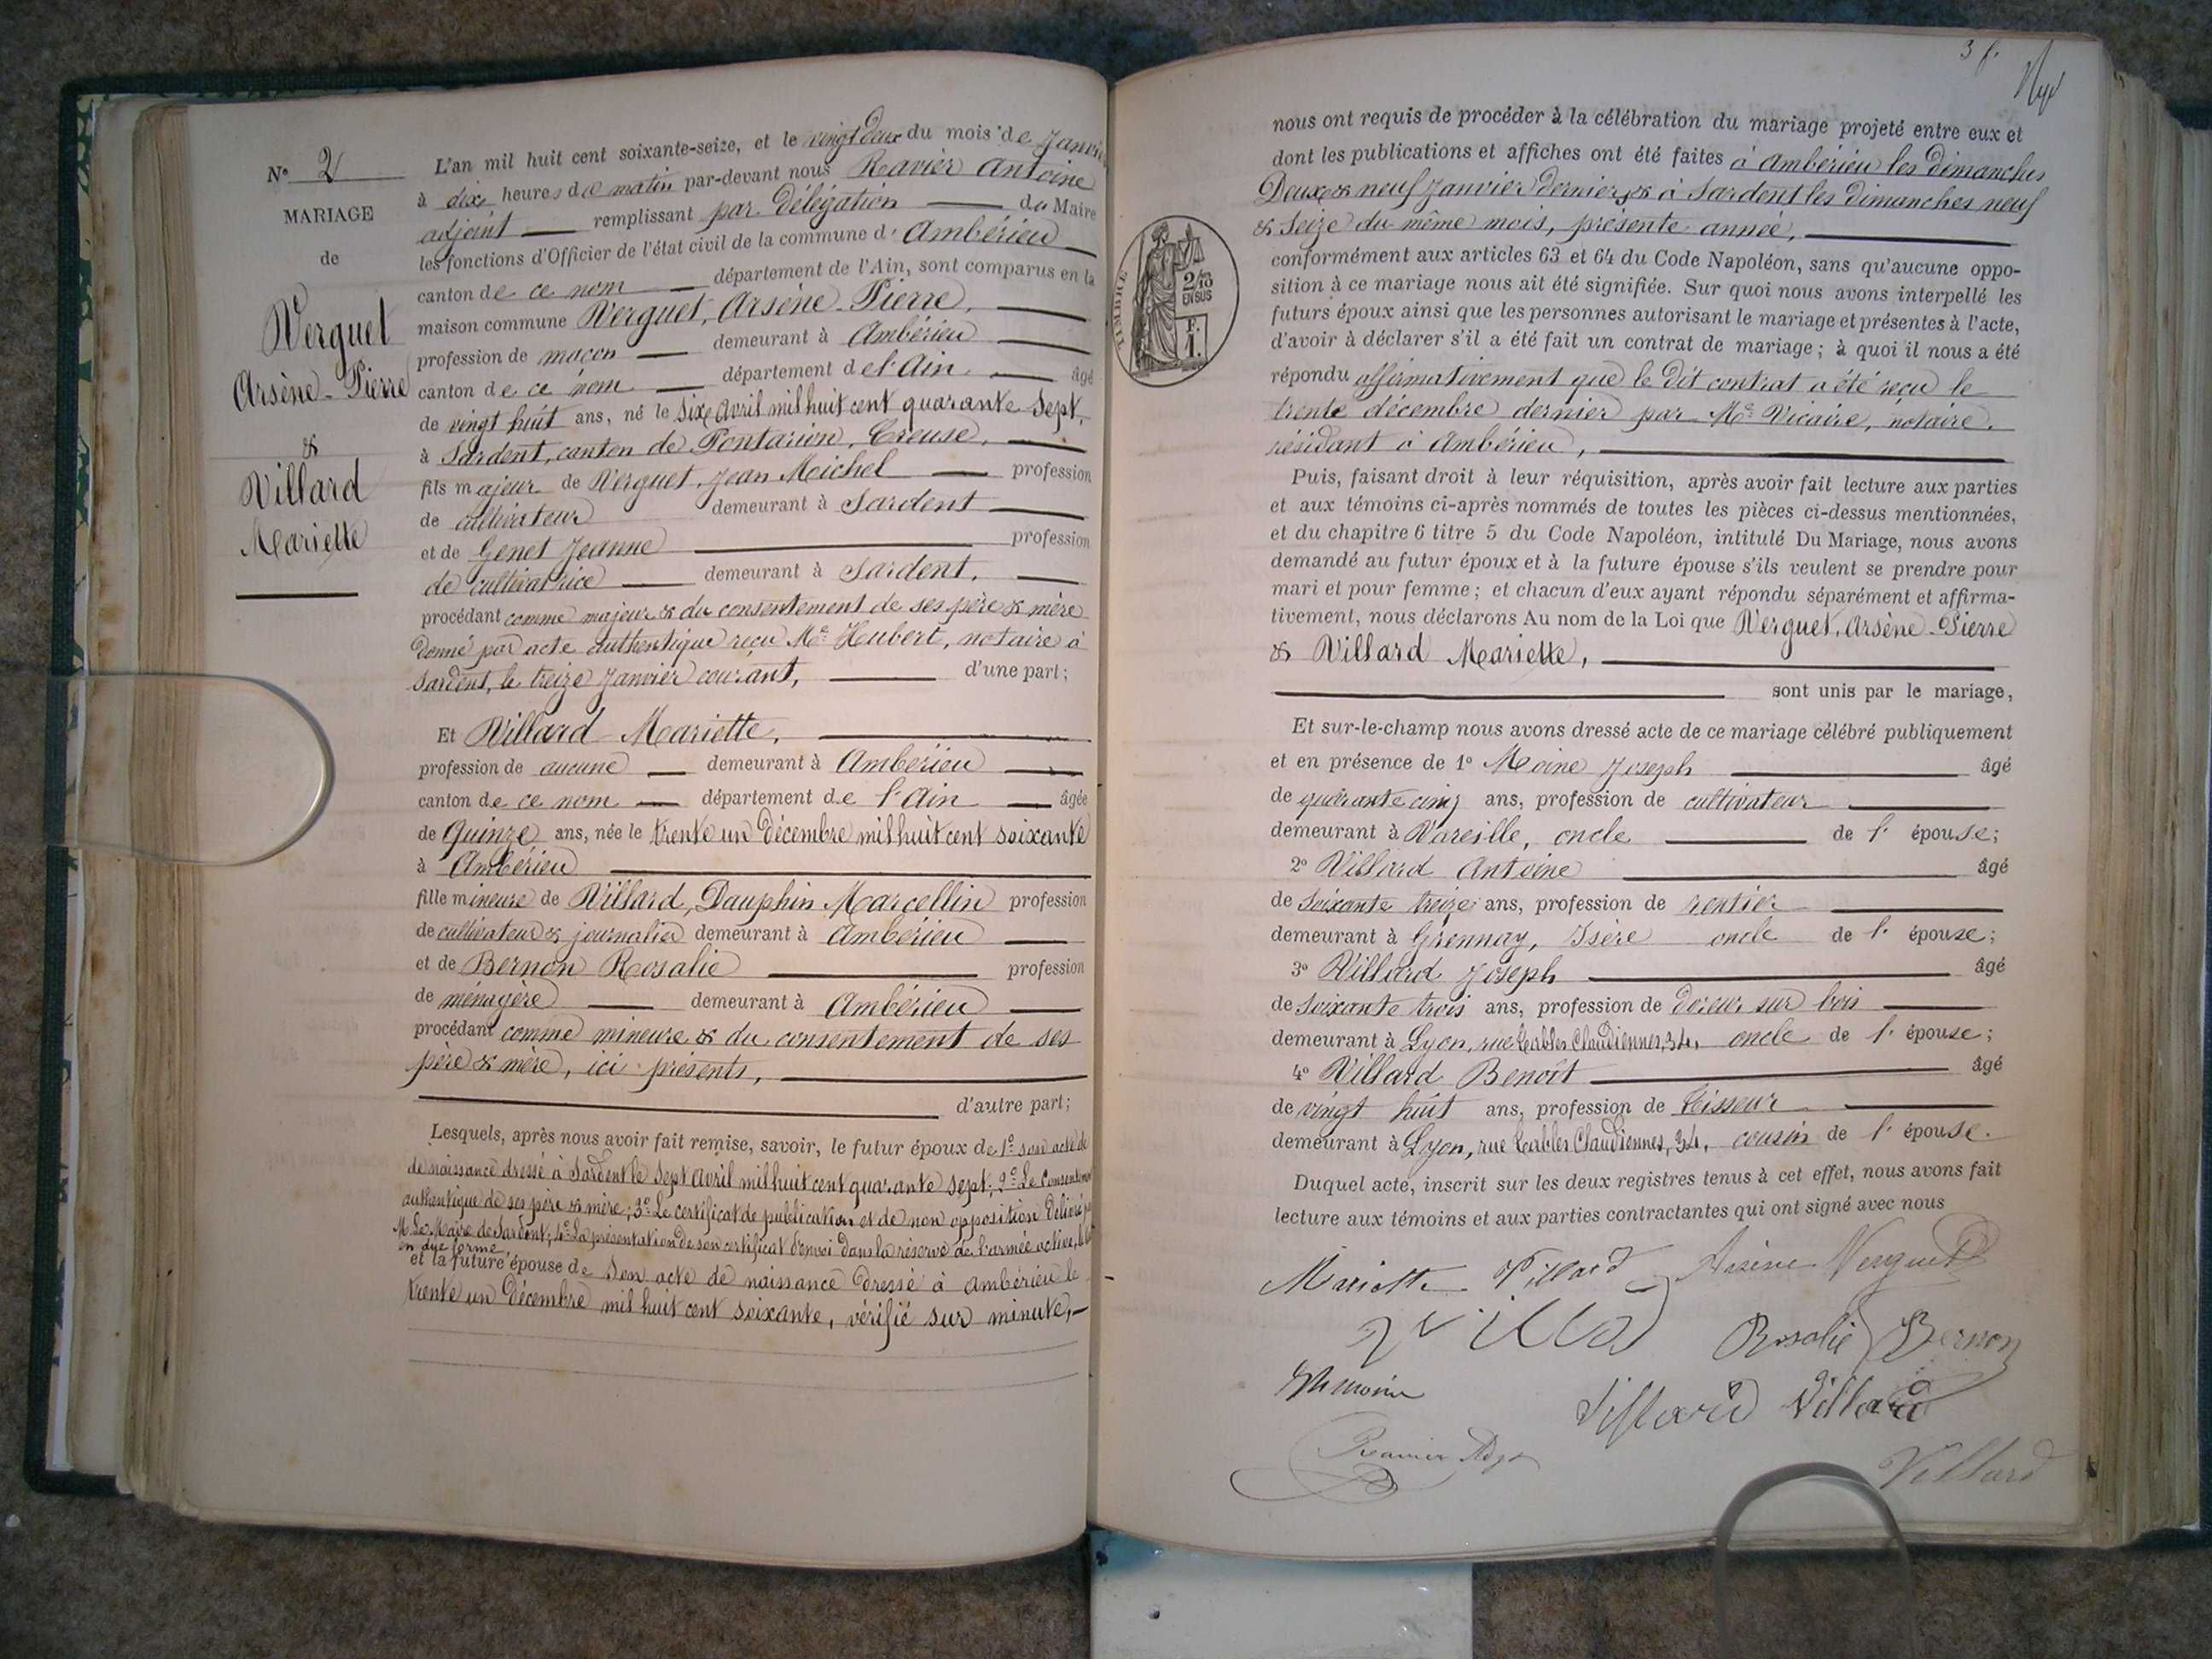 N° 2
MARIAGE
de
Verguet
Arsène-Pierre
&
Villard
Mariette
L'an mil huit cent soixante-seize, et le vingt deux du mois de Janvier
à dix heures du matin par-devant nous Ravier Antoine
adjoint remplissant par délégation du Maire
les fonctions d'Officier de l'état civil de la commune d'Ambérieu
canton de ce nom département de l'Ain, sont comparus en la
maison commune Verguet, Arsène-Pierre,
profession de maçon demeurant à Ambérieu
canton de ce nom département de l'Ain âgé
de vingt huit ans, né le six avril mil huit cent quarante sept,
à Sardent, canton de Pontarion, Creuse,
fils majeur de Verguet, Jean Michel profession
de cultivateur demeurant à Sardent
et de Genet Jeanne profession
de cultivatrice demeurant à Sardent,
procédant comme majeur & du consentement de ses père & mère
donné par acte authentique reçu Me Hubert, notaire à
Sardent, le treize Janvier courant, d'une part;
Et Villard Mariette,
profession de aucune demeurant à Ambérieu
canton de ce nom département de l'Ain âgée
de Quinze ans, née le trente un Décembre mil huit cent soixante
à Ambérieu
fille mineure de Villard, Dauphin Marcellin profession
de cultivateur & journalier demeurant à Ambérieu
et de Bernon Rosalie profession
de ménagère demeurant à Ambérieu
procédant comme mineure & du consentement de ses
père & mère, ici présents,
d'autre part;
Lesquels, après nous avoir fait remise, savoir, le futur époux de 1° son acte de
de naissance dressé à Sardent le Sept Avril mil huit cent quarante sept; 2° Le Consentement
authentique de ses père & mère; 3° Le certificat de publication et de non opposition délivré par
M. Le Maire de Sardent; 4° La présentation de son certificat d'envoi dans la réserve de l'armée active,
en due forme,
et la future épouse de Son acte de naissance dressé à Ambérieu le
trente un Décembre mil huit cent soixante, vérifié sur minute,
3 f.
nous ont requis de procéder à la célébration du mariage projeté entre eux et
dont les publications et affiches ont été faites à Ambérieu les dimanches
Deux & neuf Janvier dernier, & à Sardent les dimanches neuf
& Seize du même mois, présente année,
TIMBRE
2/10
EN SUS
F.
1.
conformément aux articles 63 et 64 du Code Napoléon, sans qu'aucune oppo-
sition à ce mariage nous ait été signifiée. Sur quoi nous avons interpellé les
futurs époux ainsi que les personnes autorisant le mariage et présentes à l'acte,
d'avoir à déclarer s'il a été fait un contrat de mariage; à quoi il nous a été
répondu affirmativement que le dit contrat a été reçu le
trente décembre dernier par Me Vicaire, notaire,
résidant à Ambérieu,
Puis, faisant droit à leur réquisition, après avoir fait lecture aux parties
et aux témoins ci-après nommés de toutes les pièces ci-dessus mentionnées,
et du chapitre 6 titre 5 du Code Napoléon, intitulé Du Mariage, nous avons
demandé au futur époux et à la future épouse s'ils veulent se prendre pour
mari et pour femme; et chacun d'eux ayant répondu séparément et affirma-
tivement, nous déclarons Au nom de la Loi que Verguet, Arsène-Pierre
& Villard Mariette,
sont unis par le mariage,
Et sur-le-champ nous avons dressé acte de ce mariage célébré publiquement
et en présence de 1° Moine Joseph âgé
de quarante cinq ans, profession de cultivateur
demeurant à Vareille, oncle de l'épouse;
2° Villard Antoine âgé
de soixante treize ans, profession de rentier
demeurant à Grennay, Isère oncle de l'épouse;
3° Villard Joseph âgé
de soixante trois ans, profession de doreur sur bois
demeurant à Lyon, rue tables Claudiennes, 34, oncle de l'épouse;
4° Villard Benoît âgé
de vingt huit ans, profession de tisseur
demeurant à Lyon, rue tables Claudiennes, 34, cousin de l'épouse.
Duquel acte, inscrit sur les deux registres tenus à cet effet, nous avons fait
lecture aux témoins et aux parties contractantes qui ont signé avec nous
Mariette Villard Arsène Verguet
Villard Rosalie Bernon
Moine
Villard Villard
Ravier Adjt
Villard